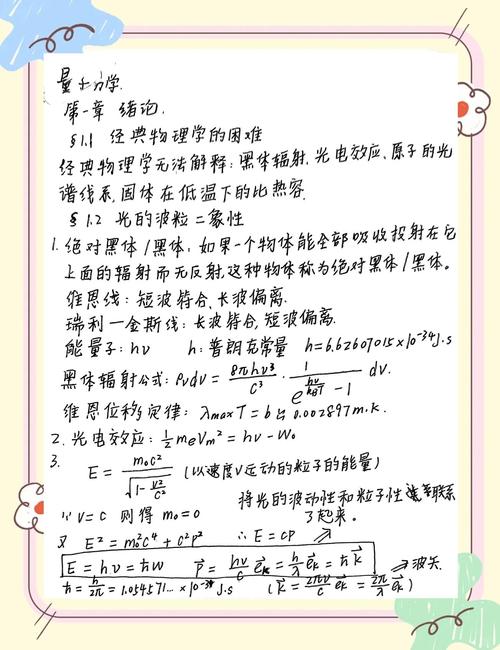 量子力学.
第一章 绪论.
§1.1 经典物理学的困难
经典物理学无法解释:黑体辐射.光电效应.原子的光
谱线系,固体在低温下的比热容.
§1.2 光的波粒二象性
1.绝对黑体/黑体:如果一个物体能全部吸收投射在它
上面的辐射而无反射,这种物体称为绝对黑体/黑体。
维恩线:短波符合,长波偏离.
瑞利一金斯线:长波符合,短波偏离.
能量子:hν h:普朗克常量 h=6.62607015×10^-34 J·s
黑体辐射公式:ρνdν = 8πhν³/c³ · 1/(e^(hν/kBT) - 1) dν.
维恩位移定律:λmaxT = b ≒ 0.002897m.k.
2.光电效应:½meVm² = hν - W₀
3.
E = m₀c²/√(1-v²/c²) (以速度v运动的粒子的能量)
∵ v=c 则得 m₀=0 将光的波动性和粒子性联系
了起来。
又 E² = m₀²c⁴ + c²p² ∴ E = cp
E = hν = ħw p⃗ = hν/c e⃗k = h/λ e⃗k = ħk⃗ → 波矢.
ħ = h/2π = 1.054571... ×10^-34 J·s (k⃗ = 2πν/c e⃗k = 2π/λ e⃗k)